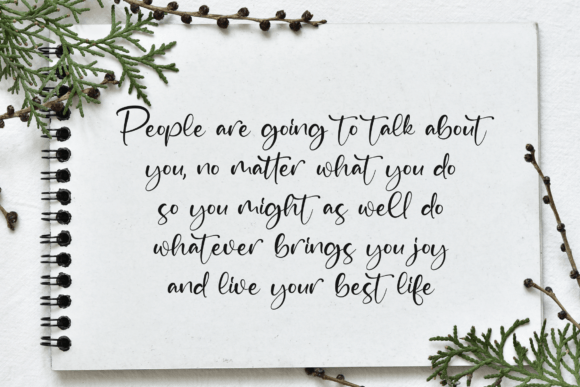 People are going to talk about
you, no matter what you do
so you might as well do
whatever brings you joy
and live your best life